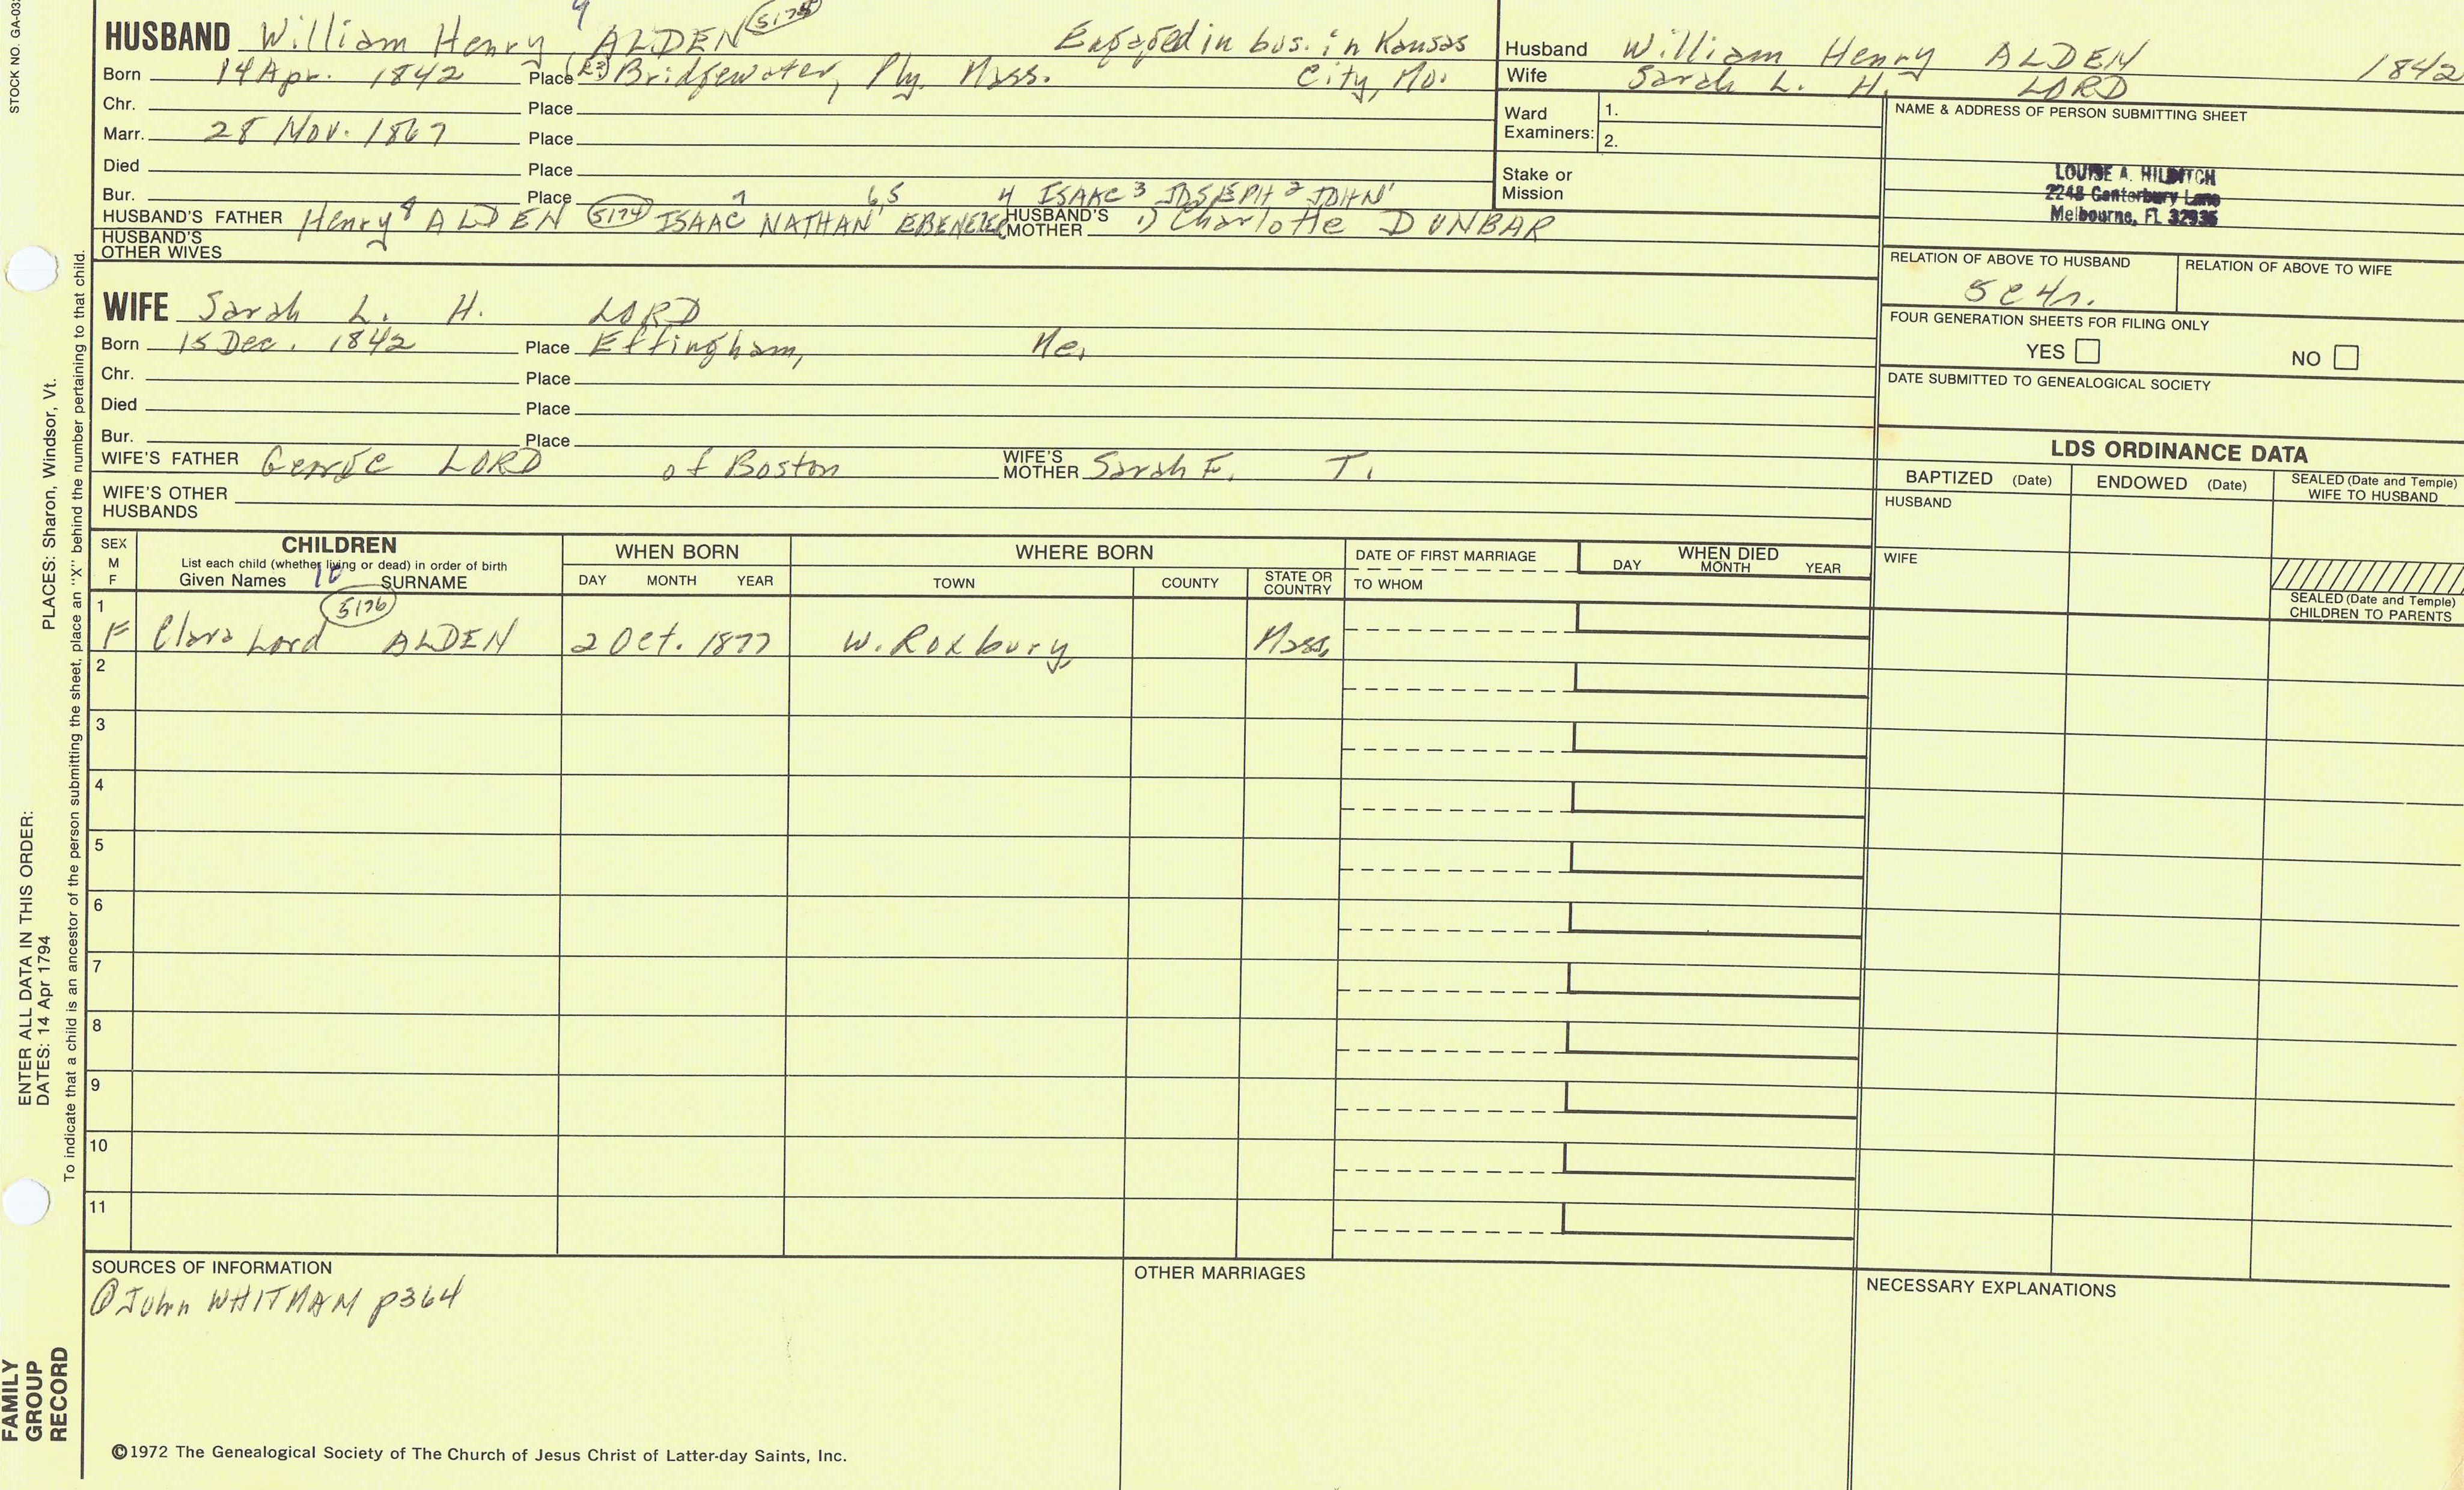 STOCK NO. GA-03
9
HUSBAND William Henry ALDEN 5175 Engaged in bus. in Kansas
Born 14 Apr. 1842 Place (R3) Bridgewater, Ply. Mass. City, Mo.
Chr. Place
Marr. 28 Nov. 1867 Place
Died Place
Bur. Place
7 6,5 4 ISAAC 3 JOSEPH 2 JOHN 1
HUSBAND'S FATHER Henry 8 ALDEN 5174 ISAAC NATHAN EBENEZER HUSBAND'S MOTHER 1) Charlotte DUNBAR
HUSBAND'S OTHER WIVES
WIFE Sarah L. H. LORD
Born 15 Dec. 1842 Place Effingham, Me.
Chr. Place
Died Place
Bur. Place
WIFE'S FATHER George LORD of Boston WIFE'S MOTHER Sarah F. T.
WIFE'S OTHER HUSBANDS
Husband William Henry ALDEN 1842
Wife Sarah L. H. LORD
Ward Examiners: 1.
2.
Stake or Mission
NAME & ADDRESS OF PERSON SUBMITTING SHEET
LOUISE A. HILDITCH
2248 Canterbury Lane
Melbourne, FL 32935
RELATION OF ABOVE TO HUSBAND RELATION OF ABOVE TO WIFE
5c4r.
FOUR GENERATION SHEETS FOR FILING ONLY
YES NO
DATE SUBMITTED TO GENEALOGICAL SOCIETY
LDS ORDINANCE DATA
BAPTIZED (Date) ENDOWED (Date) SEALED (Date and Temple) WIFE TO HUSBAND
HUSBAND
WIFE
SEALED (Date and Temple) CHILDREN TO PARENTS
SEX M F
CHILDREN
List each child (whether living or dead) in order of birth
Given Names 10 SURNAME
WHEN BORN
DAY MONTH YEAR
WHERE BORN
TOWN COUNTY STATE OR COUNTRY
DATE OF FIRST MARRIAGE
TO WHOM
WHEN DIED
DAY MONTH YEAR
1 5176
F Clara Lord ALDEN 2 Oct. 1877 W. Roxbury Mass.
2
3
4
5
6
7
8
9
10
11
SOURCES OF INFORMATION
@John WHITMAN p364
OTHER MARRIAGES
NECESSARY EXPLANATIONS
©1972 The Genealogical Society of The Church of Jesus Christ of Latter-day Saints, Inc.
FAMILY
GROUP
RECORD
ENTER ALL DATA IN THIS ORDER:
DATES: 14 Apr 1794
PLACES: Sharon, Windsor, Vt.
To indicate that a child is an ancestor of the person submitting the sheet, place an "X" behind the number pertaining to that child.